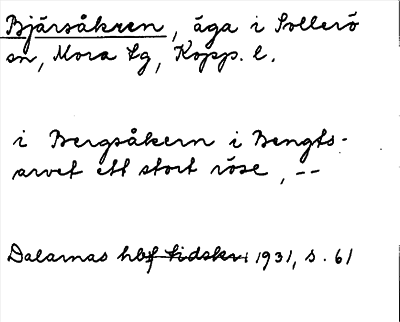 Bjärsåkren, äga i Sollerö
sn, Mora Lg, Kopp. l.
i Bergsåkern i Bengts-
arvet ett stort röse, --
Dalarnas hbf tidskr. 1931, s. 61